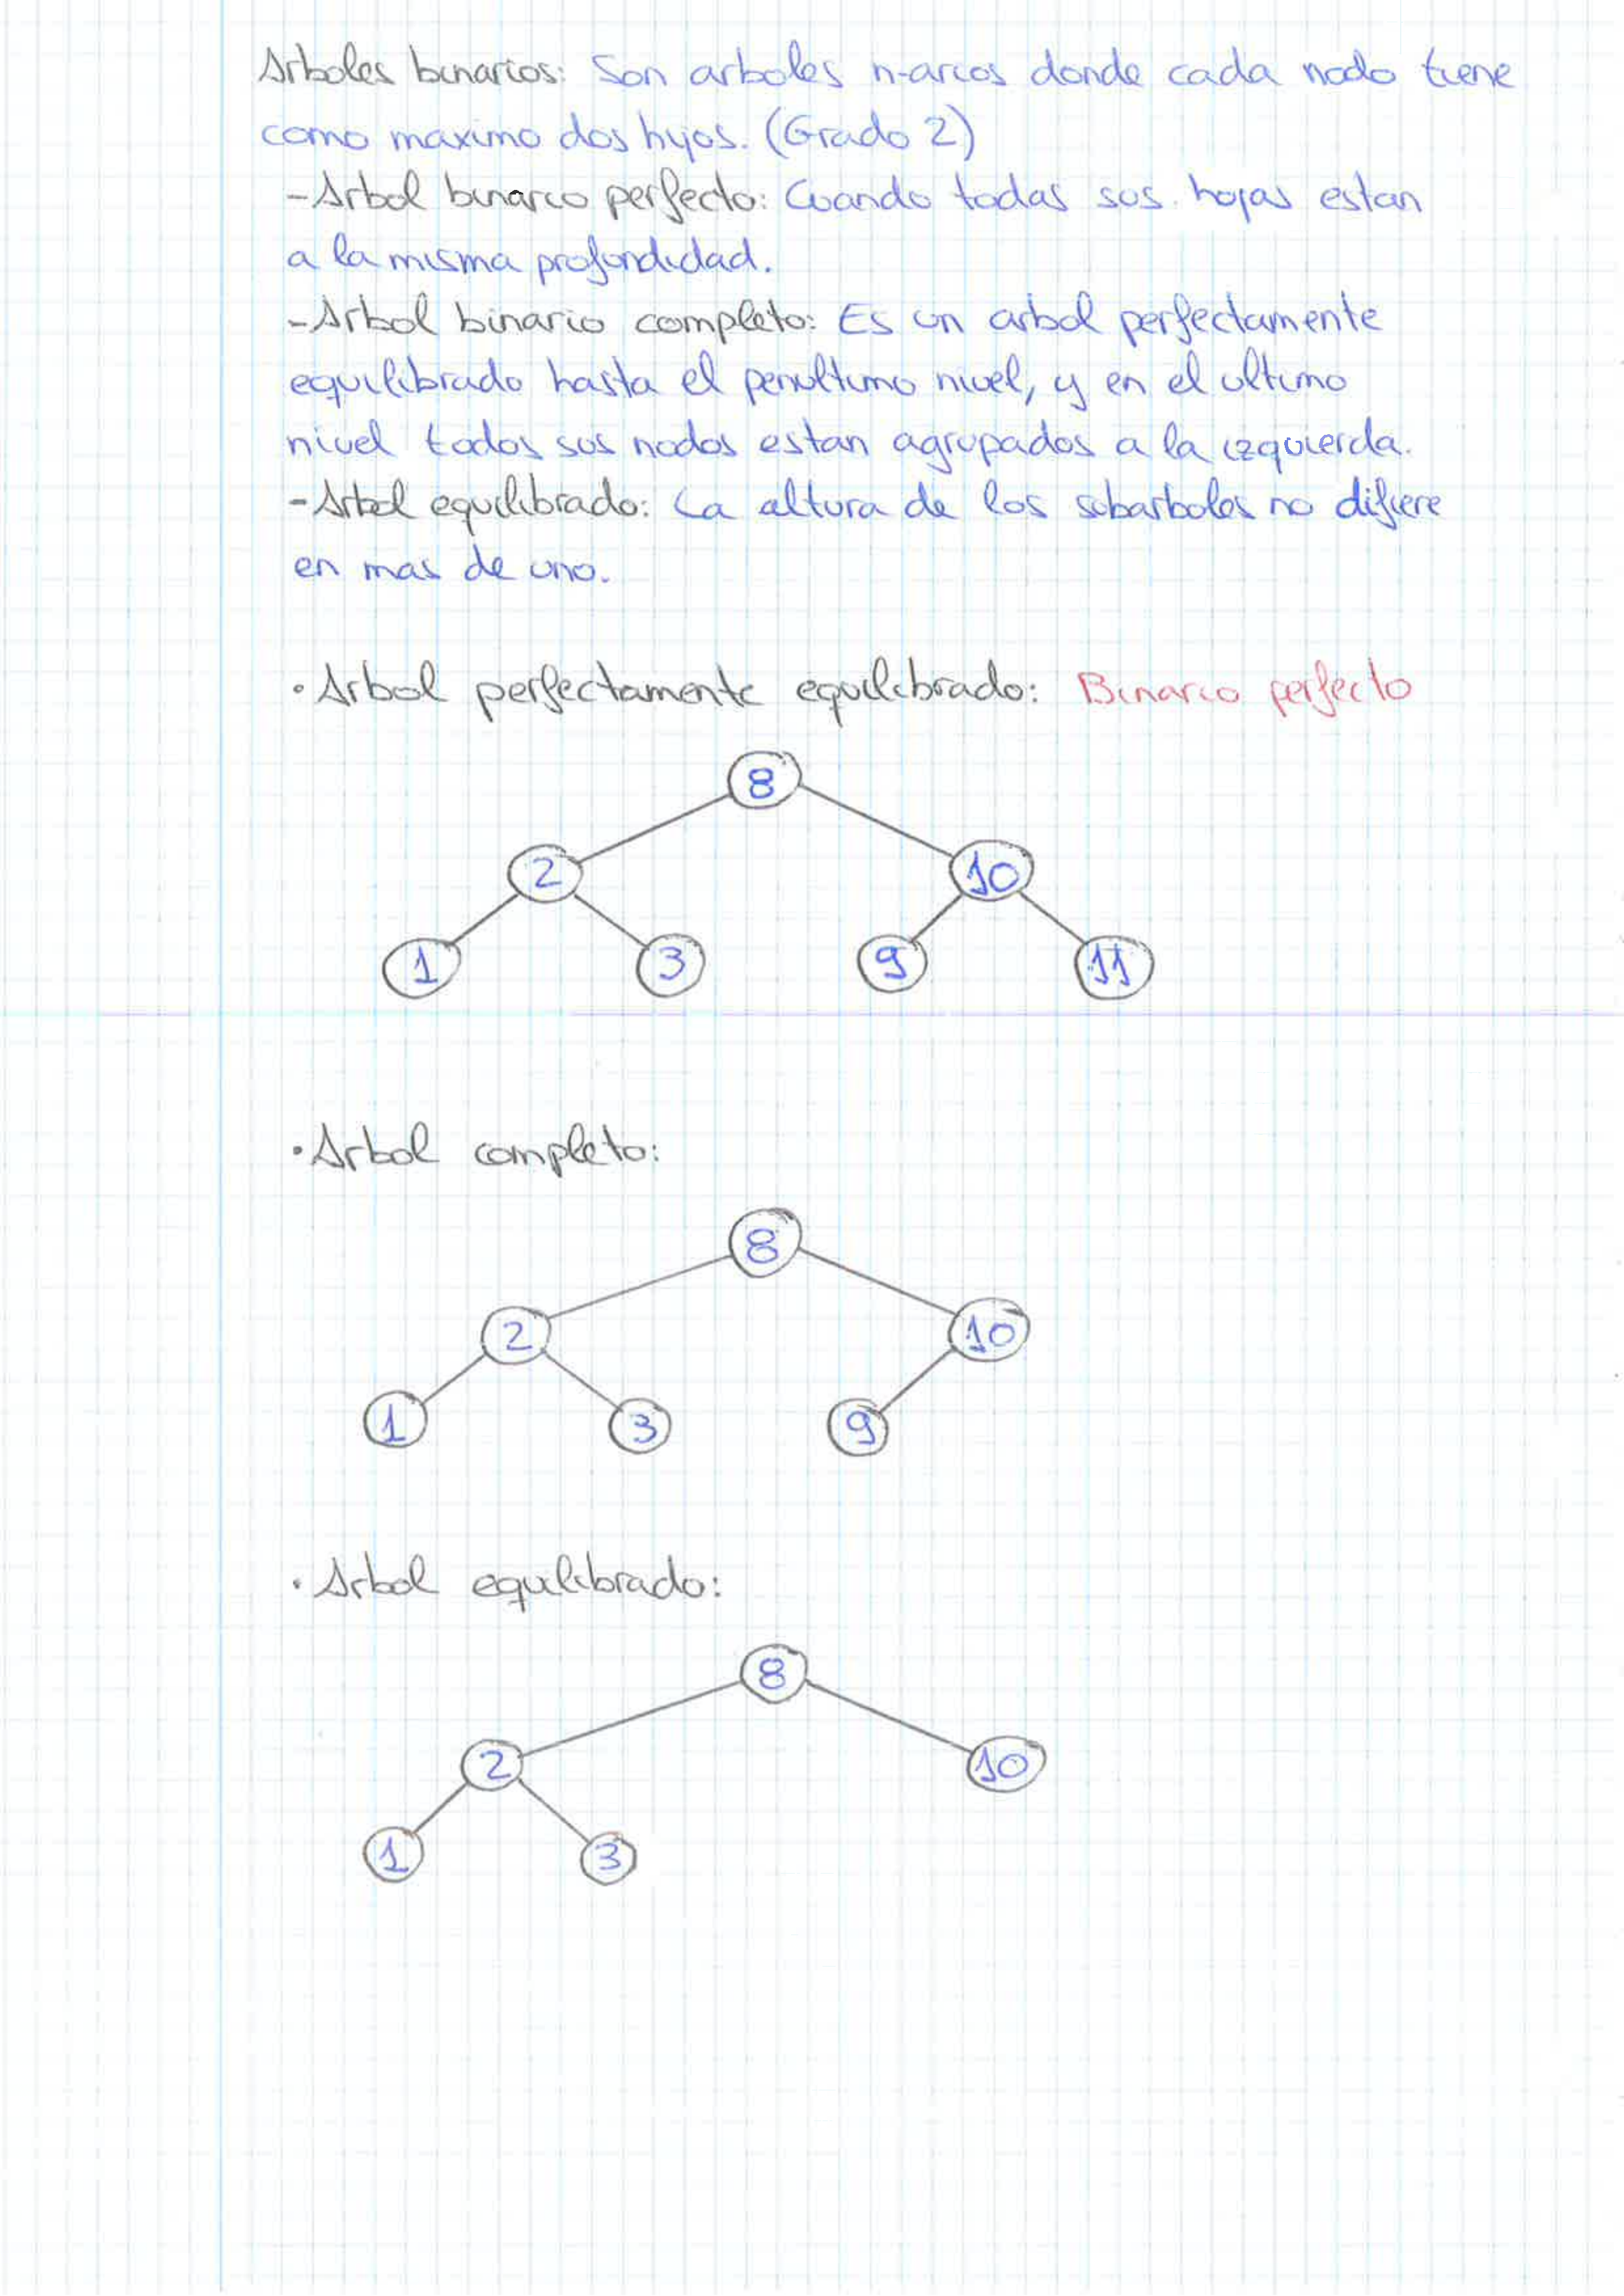 Arboles binarios: Son arboles n-arios donde cada nodo tiene
como maximo dos hijos. (Grado 2)
-Arbol binario perfecto: Cuando todas sus hojas estan
a la misma profundidad.
-Arbol binario completo: Es un arbol perfectamente
equilibrado hasta el penultimo nivel, y en el ultimo
nivel todos sus nodos estan agrupados a la izquierda.
-Arbol equilibrado: La altura de los subarboles no difiere
en mas de uno.
·Arbol perfectamente equilibrado: Binario perfecto
8
2 10
1 3 9 11
·Arbol completo:
8
2 10
1 3 9
·Arbol equilibrado:
8
2 10
1 3